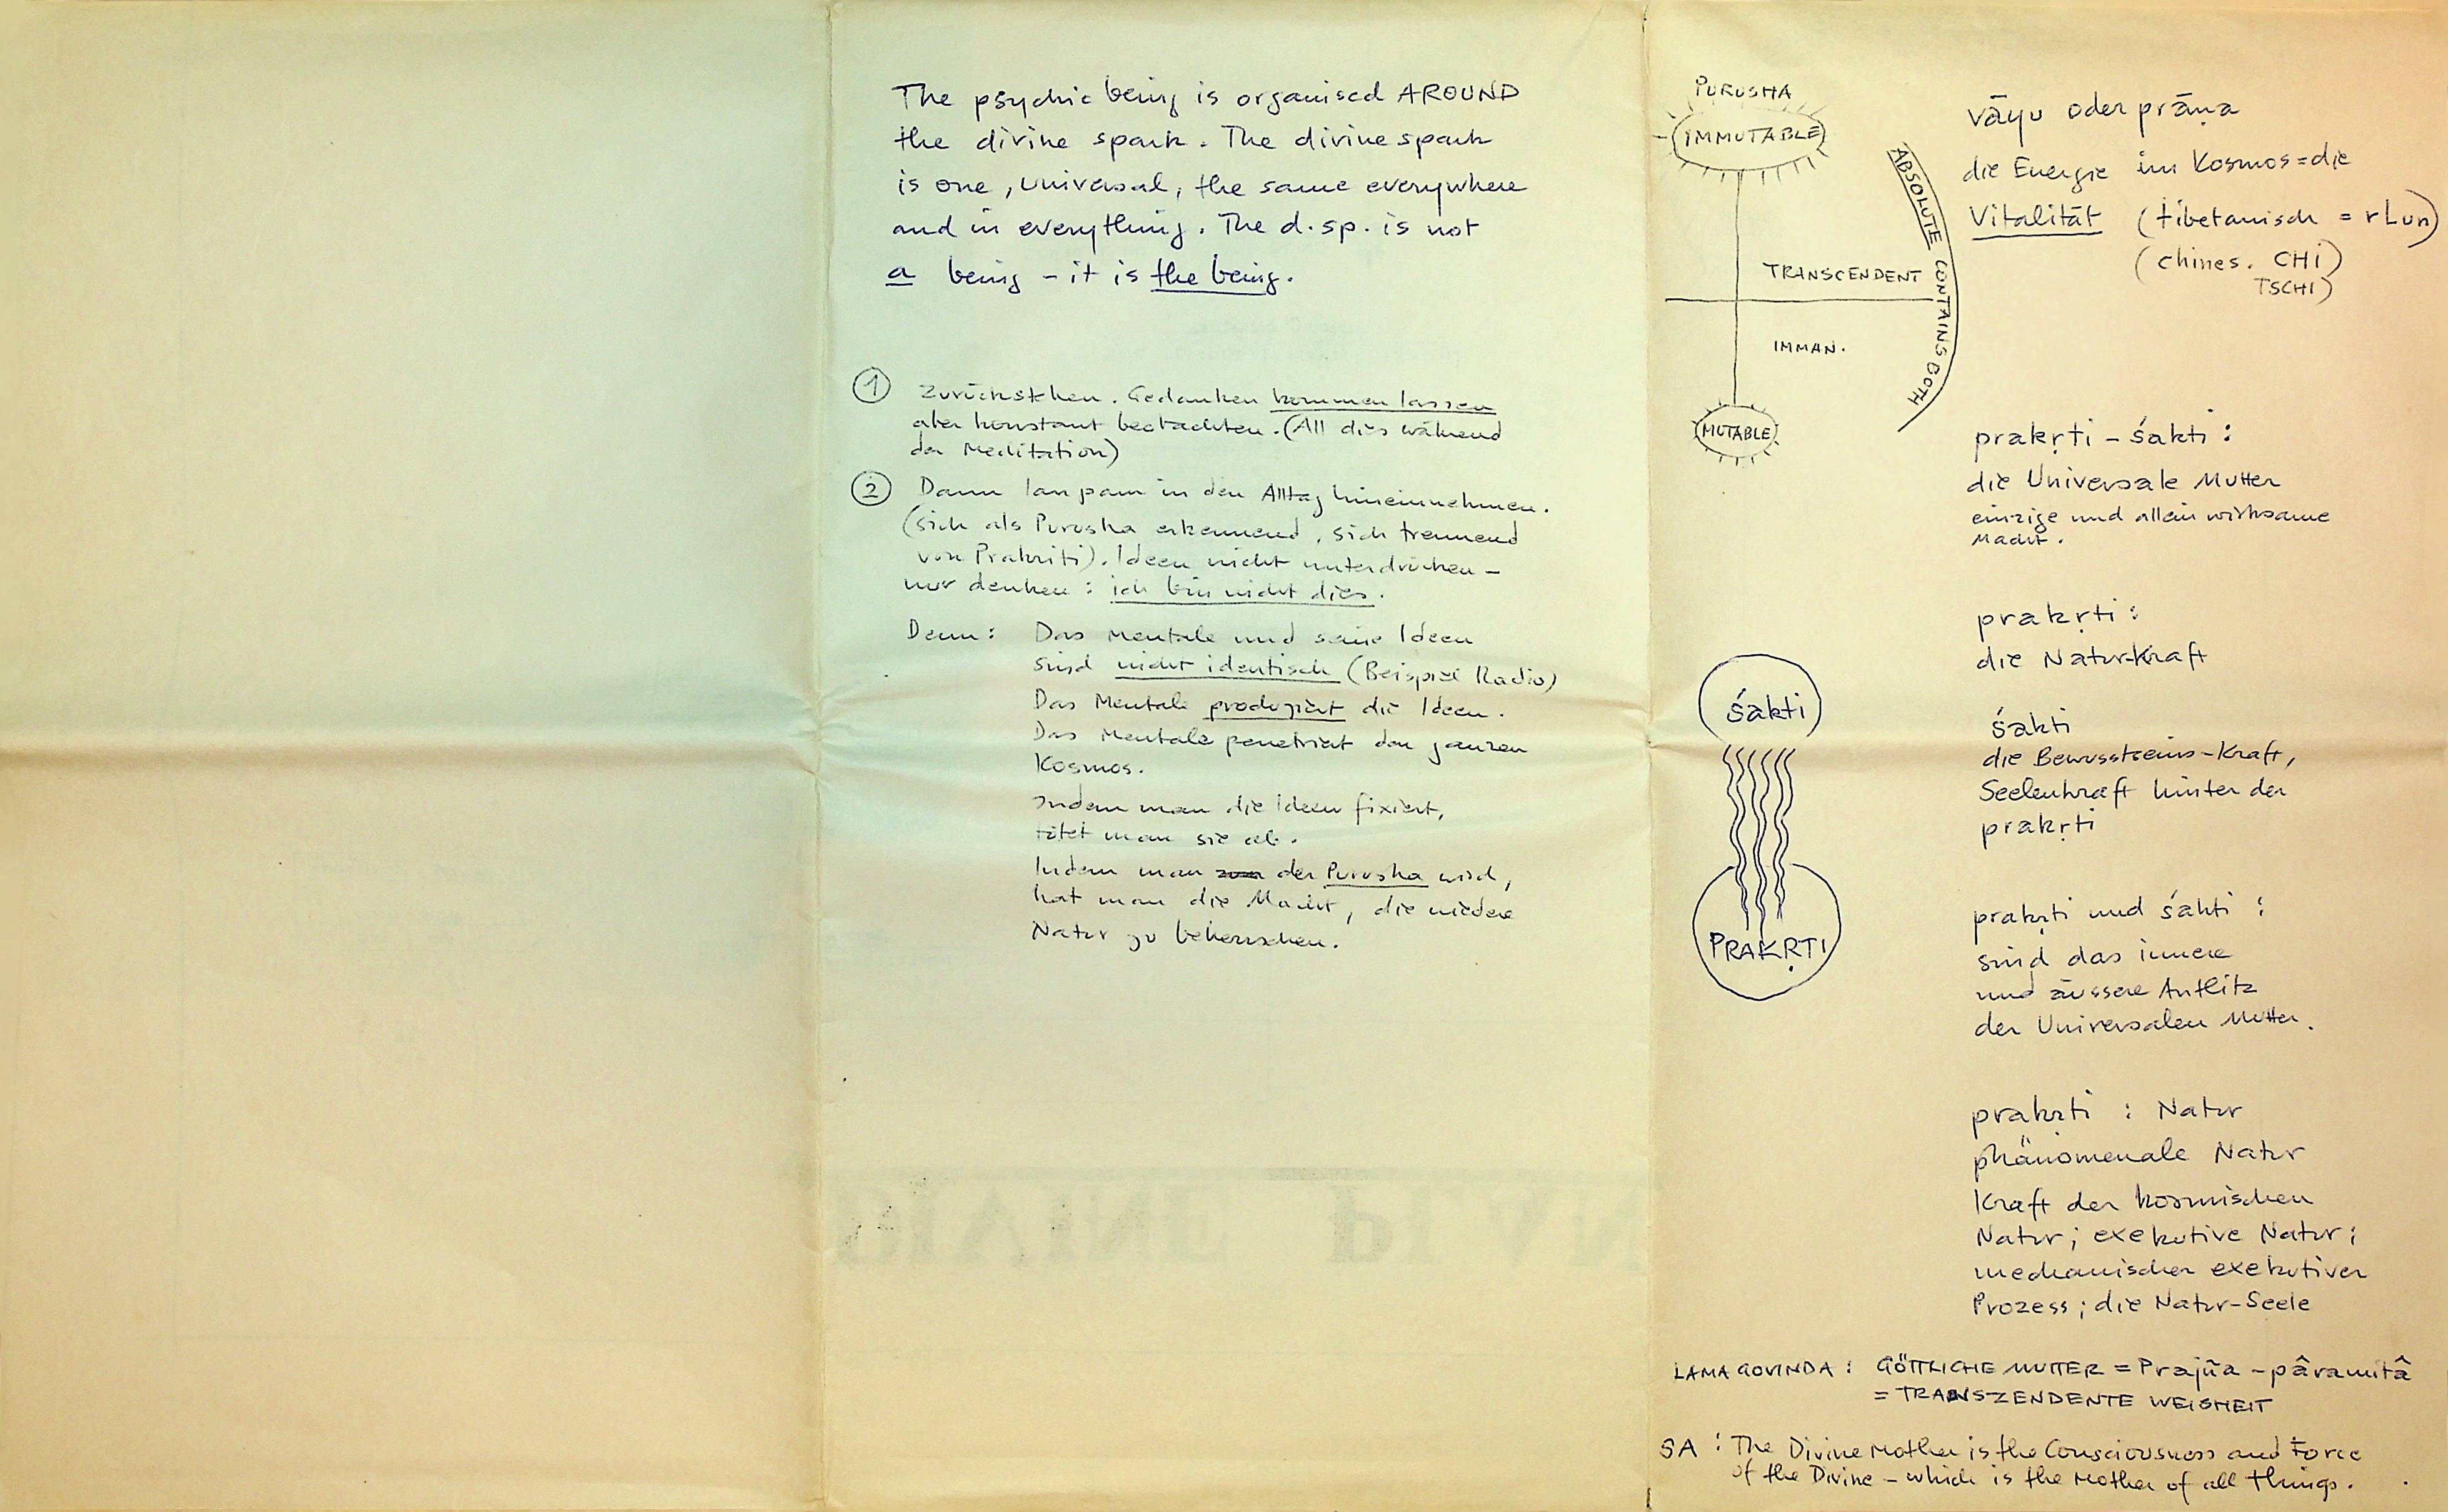 The psychic being is organised AROUND
the divine spark. The divine spark
is one, universal, the same everywhere
and in everything. The d.sp. is not
a being - it is the being.
① Zurückstehen. Gedanken kommen lassen
aber konstant beobachten. (All dies während
der Meditation)
② Dann langsam in den Alltag hineinnehmen.
(sich als Purusha erkennend, sich trennend
von Prakriti). Ideen nicht unterdrücken -
nur denken: ich bin nicht dies.
Denn: Das Mentale und seine Ideen
sind nicht identisch (Beispiel Radio)
Das Mentale produziert die Ideen.
Das Mentale penetriert den ganzen
Kosmos.
Indem man die Ideen fixiert,
tötet man sie ab.
Indem man der Purusha wird,
hat man die Macht, die niedere
Natur zu beherrschen.
PURUSHA
IMMUTABLE
TRANSCENDENT
IMMAN.
MUTABLE
ABSOLUTE CONTAINS BOTH
śakti
PRAKṚTI
vāyu oder prāṇa
die Energie im Kosmos = die
Vitalität (tibetanisch = rLun)
(chines. CHI)
TSCHI)
prakṛti - śakti:
die Universale Mutter
einzige und allein wirksame
Macht.
prakṛti:
die Natur-Kraft
śakti
die Bewusstseins-Kraft,
Seelenkraft hinter der
prakṛti
prakṛti und śakti:
sind das innere
und äussere Antlitz
der Universalen Mutter.
prakṛti : Natur
phänomenale Natur
Kraft der kosmischen
Natur; exekutive Natur;
mechanischer exekutiver
Prozess; die Natur-Seele
LAMA GOVINDA: GÖTTLICHE MUTTER = Prajña - pâramitâ
= TRANSZENDENTE WEISHEIT
SA: The Divine Mother is the Consciousness and Force
of the Divine - which is the Mother of all things.